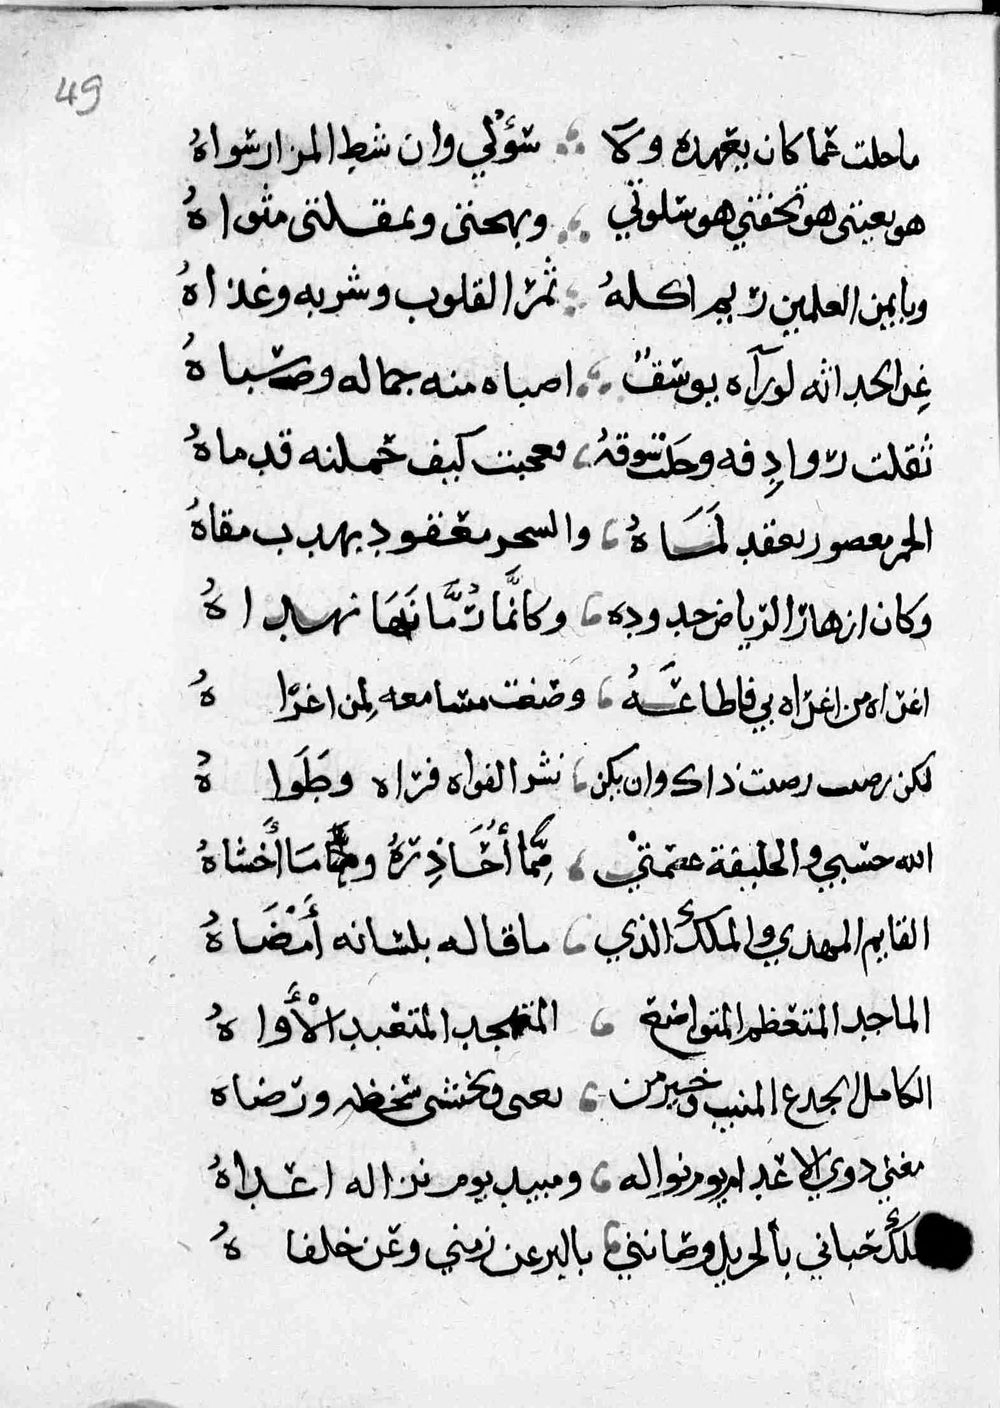 49
ما حلت عما كان يعهده ولا سؤلي وان شط المزار سواه
هو بغيتي هو تحفتي هو سلوتي وبمهجتي وبمقلتي مثواه
وبايمن العلمين ريم اكله ثمر القلوب وشربه وغذاه
غر الحداثه لو رآه يوسف اصباه منه جماله وصباه
ثقلت روادفه وحلت سوقه فعجبت كيف حملنه قدماه
الخمر معصور بعقد لماه والسحر معقود بهدب مقاه
وكان ازهار الرياض خدوده وكانما رمانها نهداه
اغراه من اغراه بي فاطاعه وصغت مسامعه لمن اغراه
لكن رضيت رضيت ذاك وان يكن نشر الفواه فراه وطواه
الله حسبي والخليفة عصمتي مما أحاذره وما أخشاه
القايم المهدي والملك الذي ما قاله بلسانه أمضاه
الماجد المتعظم المتواضع المتهجد المتعبد الأواه
الكامل الجدع المنيب وخير من يعى ويخشى سخطه ورضاه
مغني ذوي الاعدام يوم نواله ومبيد يوم نزاله اعداه
ملك حباني بالجزيل وصانني بالبر عن زمني وعن خلفاه